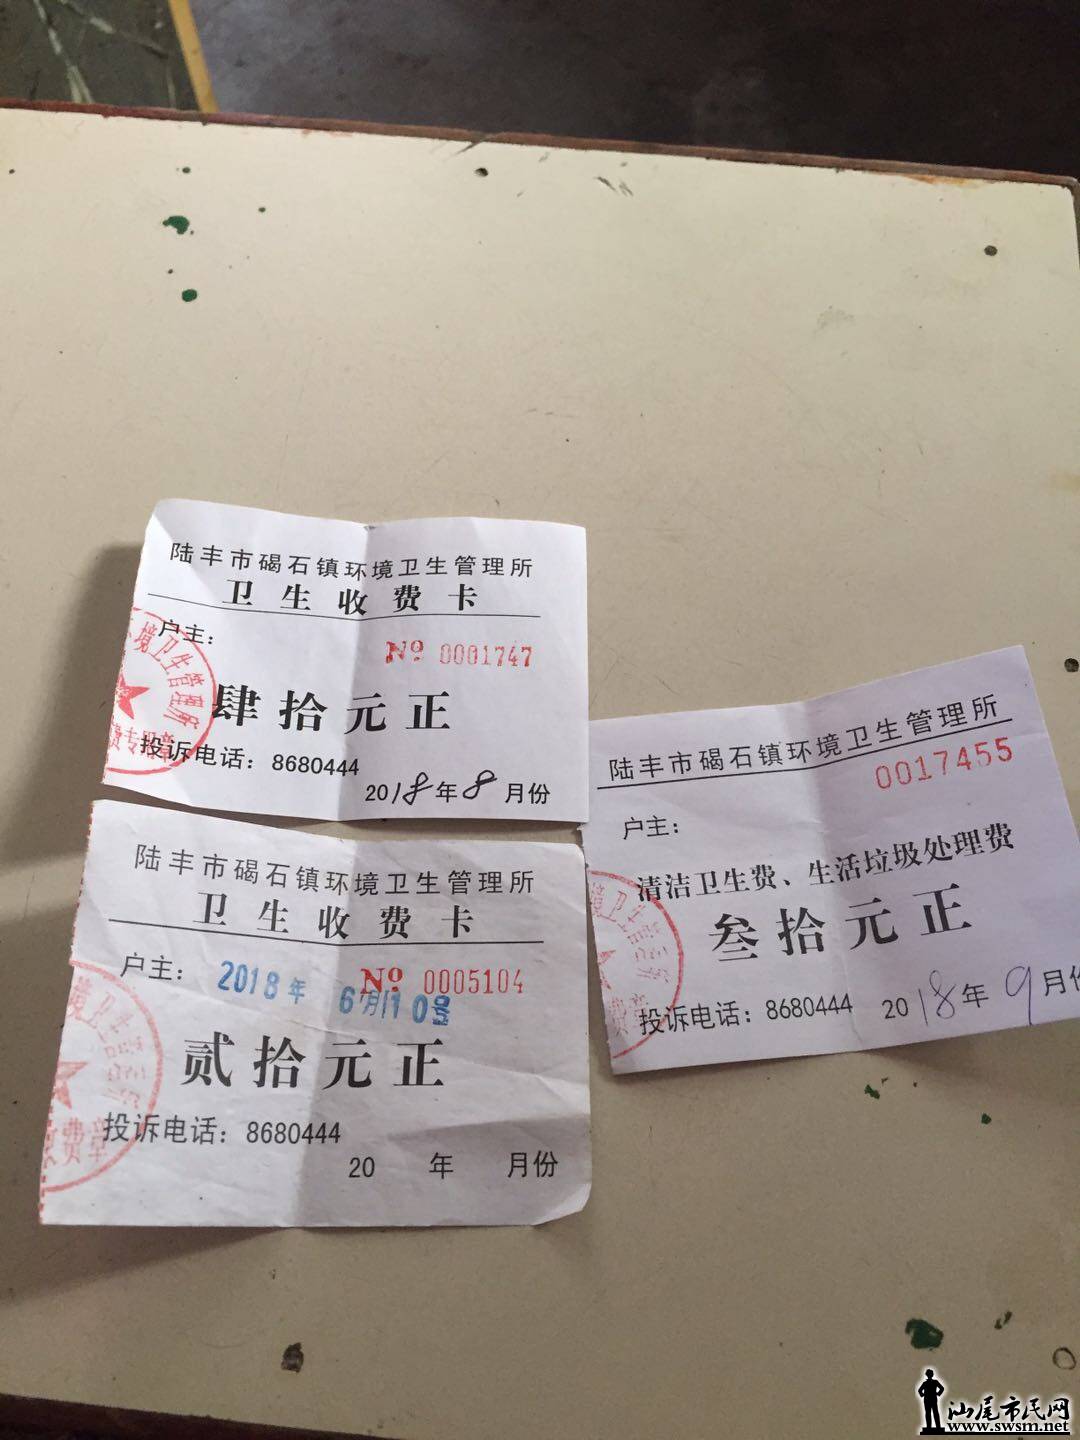 陆丰市碣石镇环境卫生管理所
卫生收费卡
户主：
No 0001747
肆拾元正
投诉电话：8680444
2018年8月份
环境卫生管理所
费专用章
陆丰市碣石镇环境卫生管理所
卫生收费卡
户主：
2018年
No 0005104
贰拾元正
投诉电话：8680444
20 年 月份
费章
陆丰市碣石镇环境卫生管理所
0017455
户主：
清洁卫生费、生活垃圾处理费
叁拾元正
投诉电话：8680444
2018年9月份
汕尾市民网
www.swsm.net